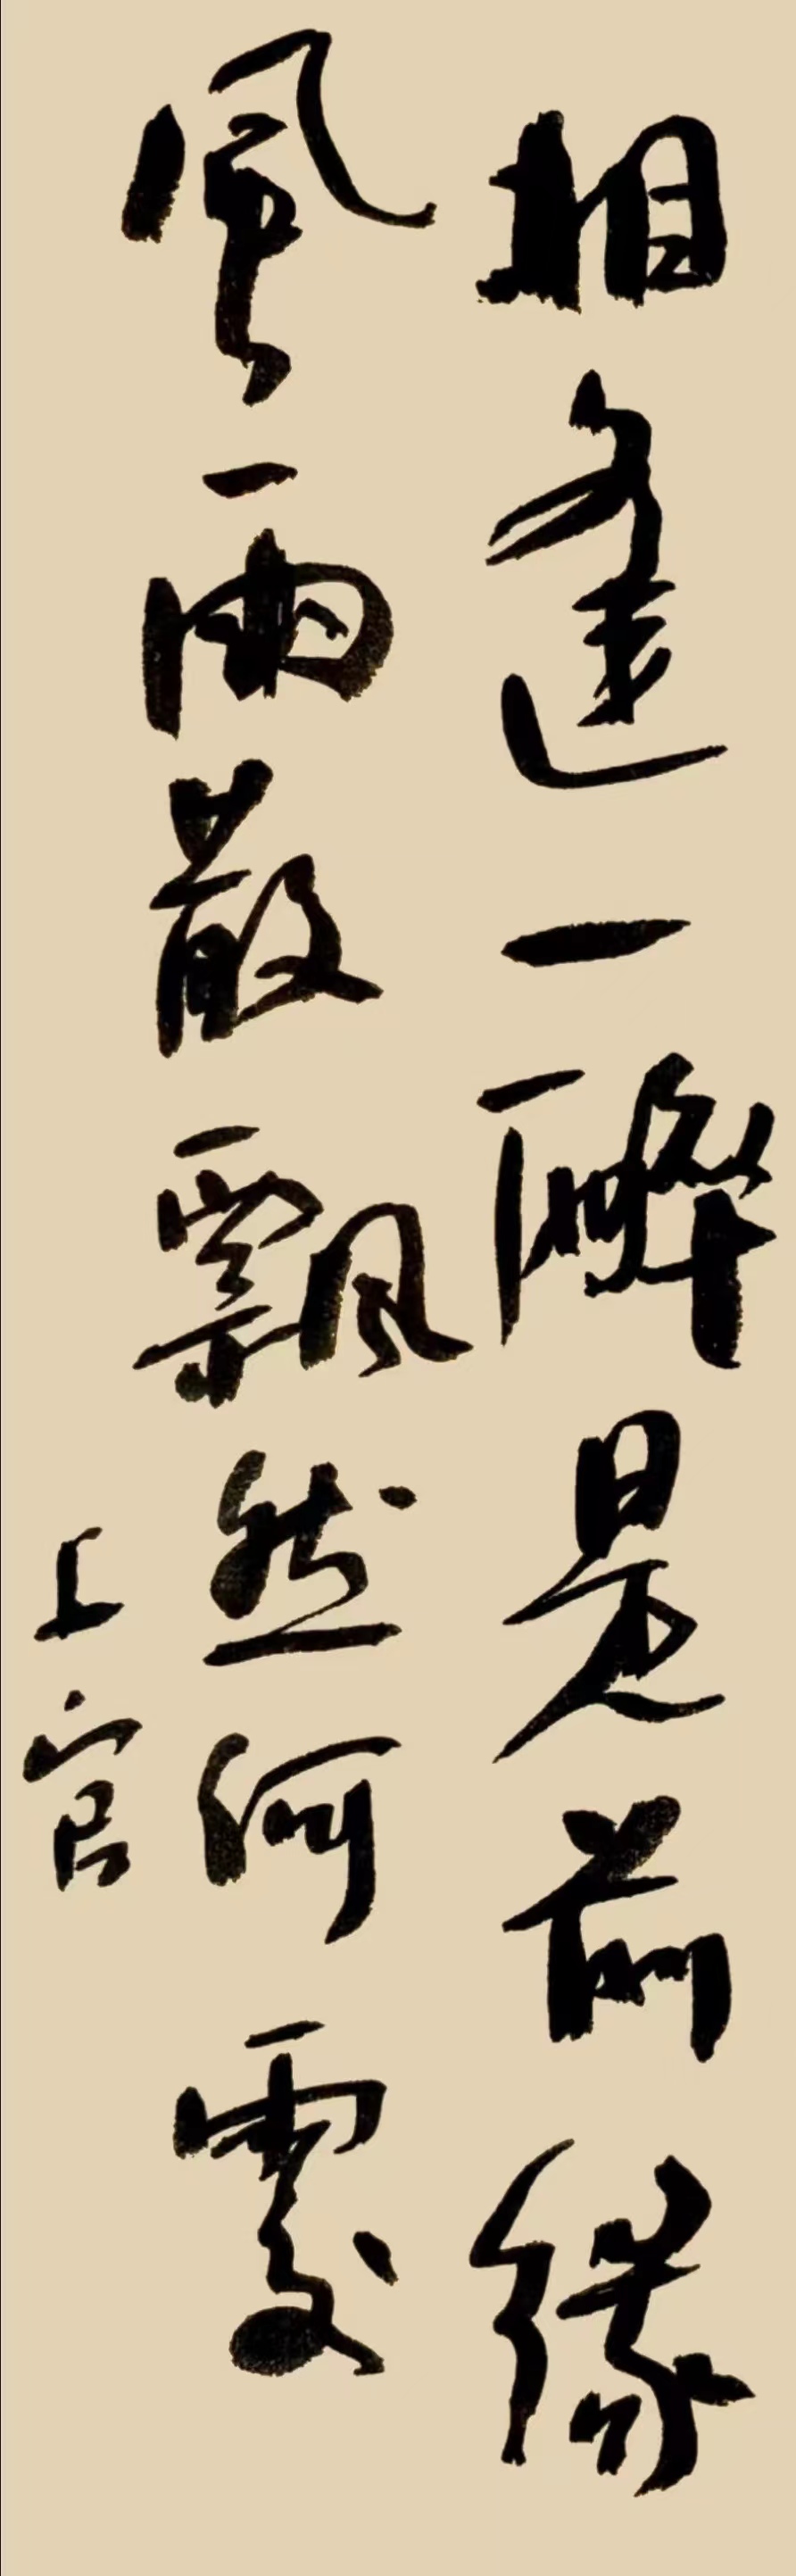 相逢一醉是前緣
風雨散飄然何處
上官